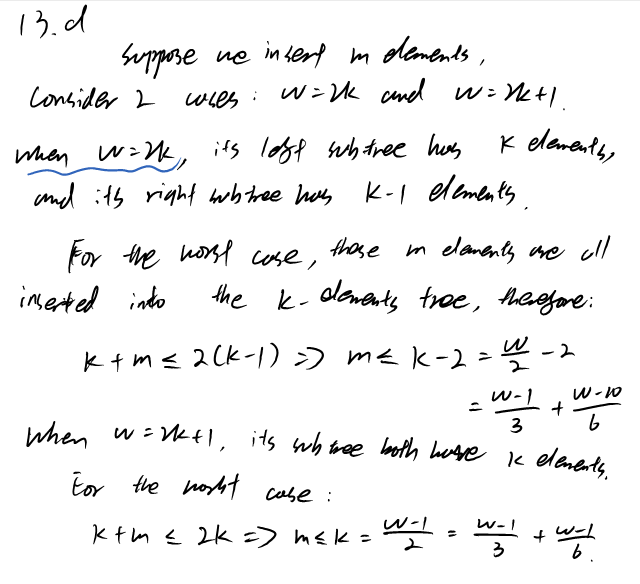 13.d
Suppose we insert m elements,
Consider 2 cases: w=2k and w=2k+1.
When w=2k, its left subtree has k elements,
and its right subtree has k-1 elements.
For the worst case, those m elements are all
inserted into the k-elements tree, therefore:
k+m ≤ 2(k-1) => m ≤ k-2 = w/2 - 2
= (w-1)/3 + (w-10)/6
When w=2k+1, its subtree both have k elements.
For the worst case:
k+m ≤ 2k => m ≤ k = (w-1)/2 = (w-1)/3 + (w-1)/6.